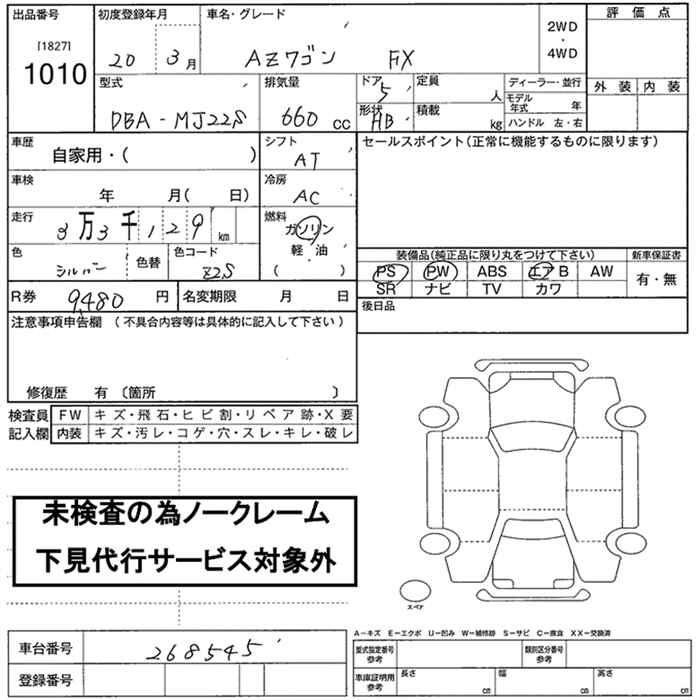 出品番号 初度登録年月 車名・グレード 2WD・4WD 評価点
[1827]
1010
20 3月 AZワゴン FX
外装 内装
型式 排気量 ドア 定員 ディーラー・並行
5 人 モデル年式 年
DBA-MJ22S 660cc 形状 HB 積載 kg ハンドル 左・右
車歴 自家用・( ) シフト AT セールスポイント(正常に機能するものに限ります)
車検 年 月( 日) 冷房 AC
走行 3万3千129km 燃料 ガソリン 軽・油 ( )
色 シルバー 色替 色コード Z2S 装備品(純正品に限り丸をつけて下さい) 新車保証書
PS PW ABS エアB AW 有・無
R券 9,480円 名変期限 月 日 SR ナビ TV カワ
後日品
注意事項申告欄 (不具合内容等は具体的に記入して下さい)
修復歴 有 〔箇所 〕
検査員 FW キズ・飛石・ヒビ割・リペア跡・X要
記入欄 内装 キズ・汚レ・コゲ・穴・スレ・キレ・破レ
未検査の為ノークレーム
下見代行サービス対象外
スペア
A−キズ E−エクボ U−凹み W−補修跡 S−サビ C−腐食 XX−交換済
車台番号 268545 型式指定番号 参考 類別区分番号 参考
登録番号 車庫証明用 参考 長さ cm 幅 cm 高さ cm